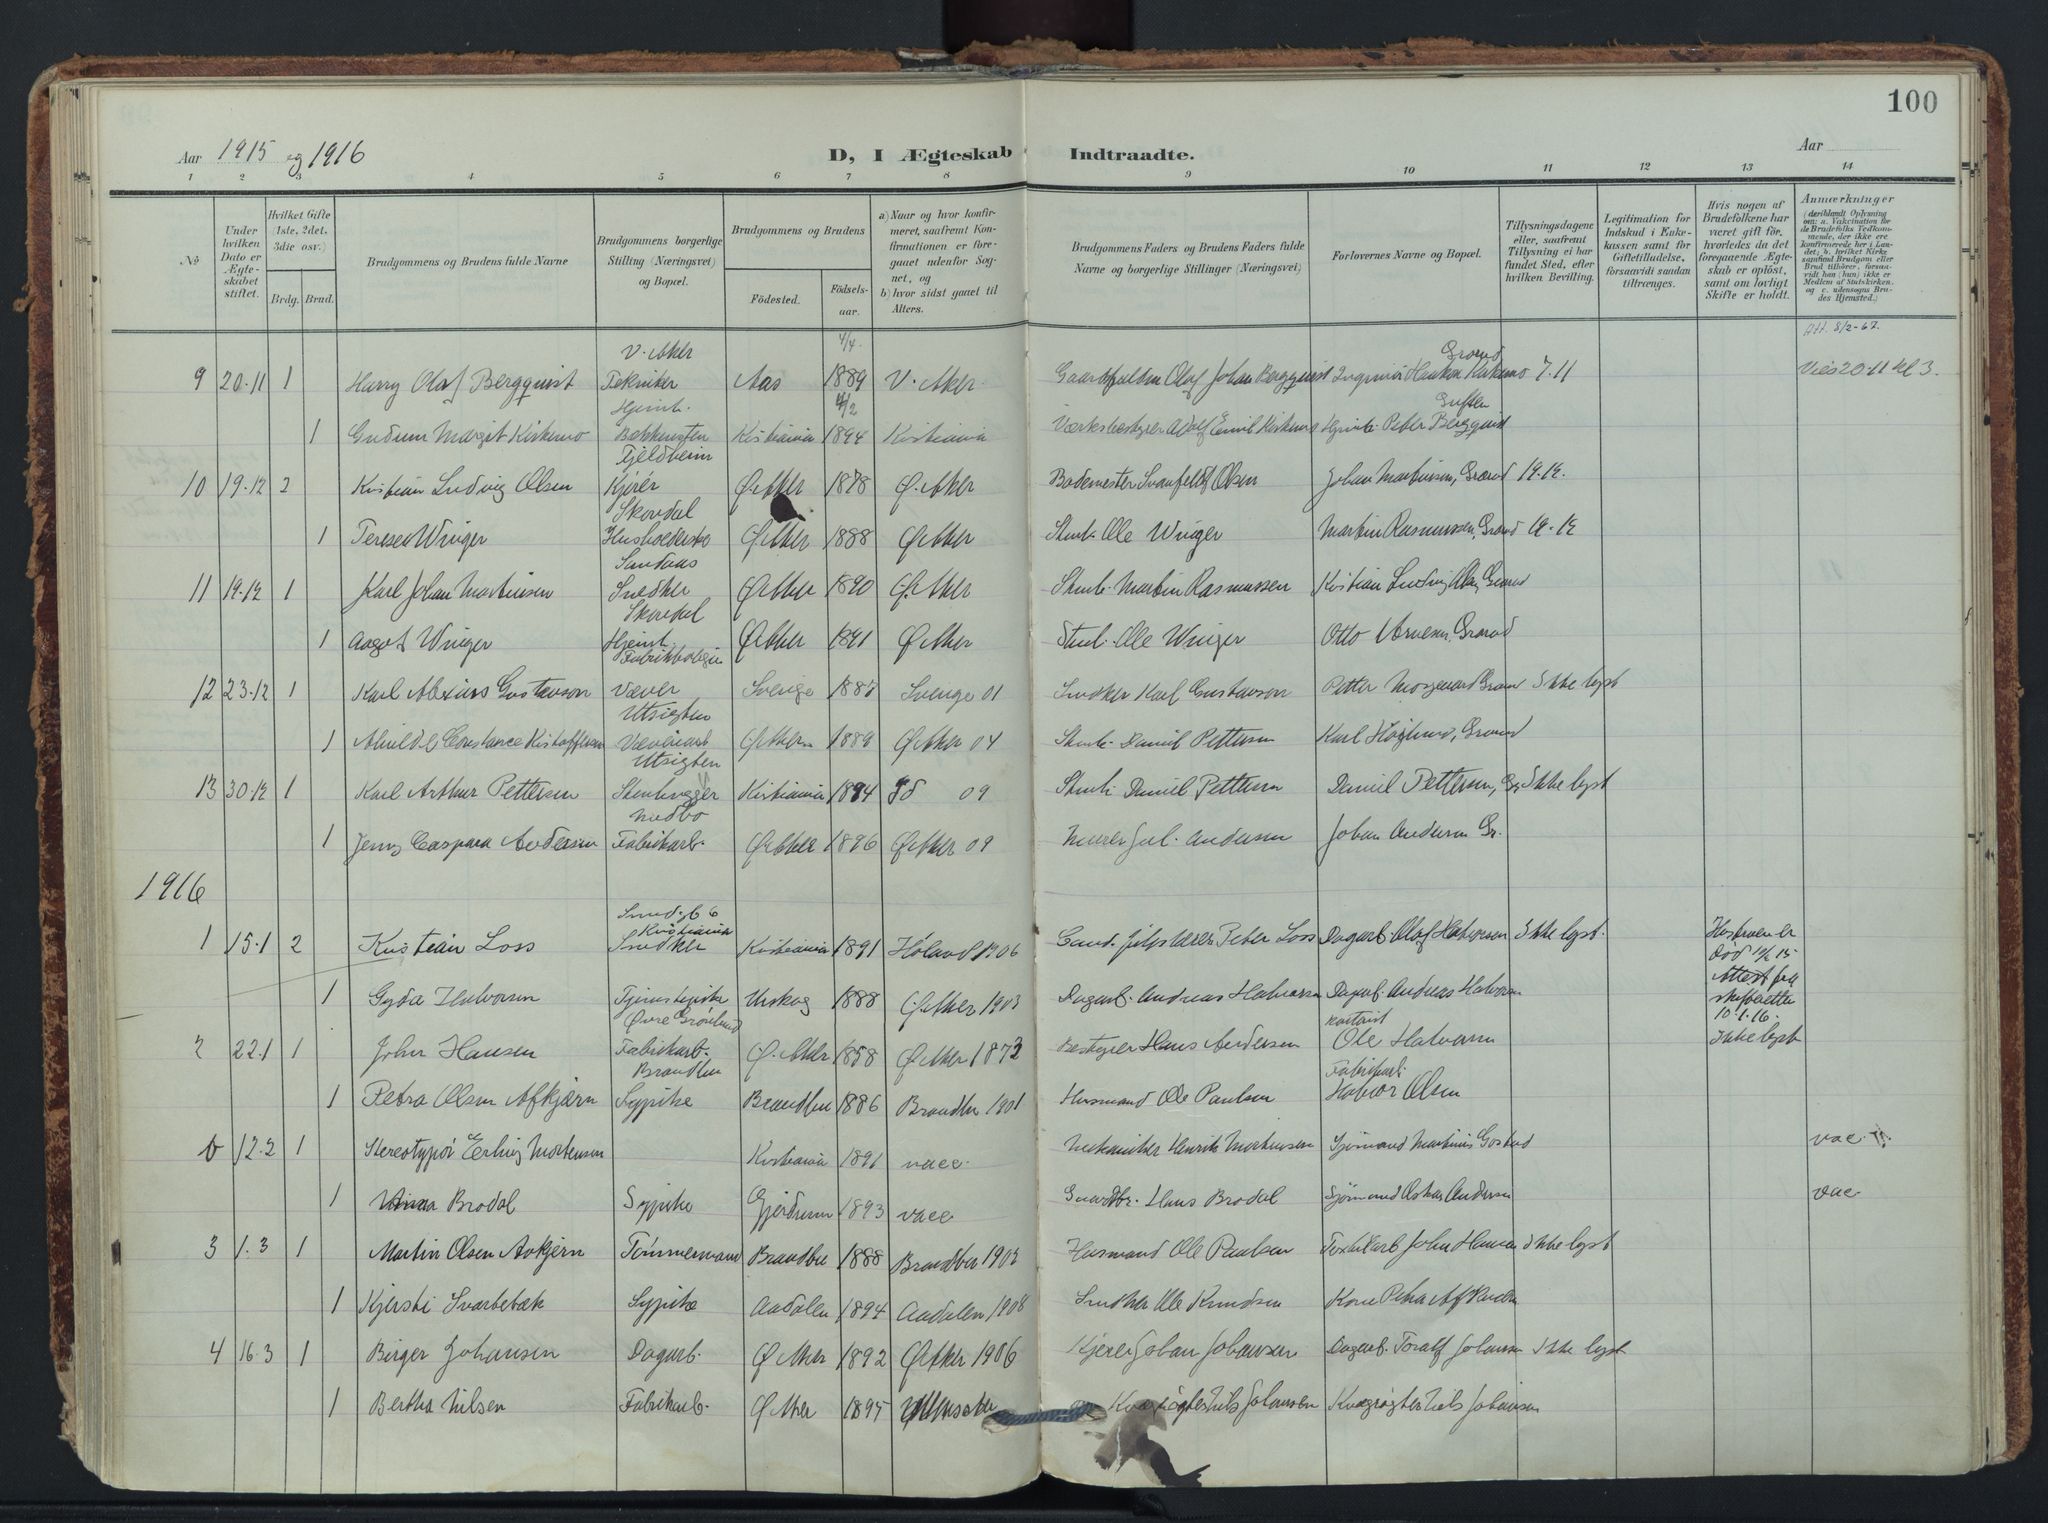 100
Aar 1915 og 1916
D, I Ægteskab Indtraadte.
Aar
1 2 3 4 5 6 7 8 9 10 11 12 13 14
No
Under hvilken Dato er Ægteskabet stiftet.
Hvilket Gifte (1ste, 2det, 3die osv.)
Brdg. Brud.
Brudgommens og Brudens fulde Navne
Brudgommens borgerlige Stilling (Næringsvei) og Bopæl.
Brudgommens og Brudens
Födested. Födselsaar.
a) Naar og hvor konfirmeret, saafremt Konfirmationen er foregaaet udenfor Sognet, og
b) hvor sidst gaaet til Alters.
Brudgommens Faders og Brudens Faders fulde Navne og borgerlige Stillinger (Næringsvei)
Forlovernes Navne og Bopæl.
Tillysningsdagene eller, saafremt Tillysning ei har fundet Sted, efter hvilken Bevilling.
Legitimation for Indskud i Enkekassen samt for Giftetilladelse, forsaavidt saadan tiltrænges.
Hvis nogen af Brudefolkene har været gift för, hvorledes da det foregaaende Ægteskab er oplöst, samt om lovligt Skifte er holdt.
Anmærkninger (deriblandt Oplysning om: a. Vakcination for de Brudefolks Vedkommende, der ikke ere konfirmerede her i Landet; b. hvilket Kirkesamfund Brudgom eller Brud tilhörer, forsaavidt han (hun) ikke er Medlem af Statskirken, og c. udensogns Brudes Hjemsted.)
Att. 8/2-67.
9 20.11 1 Harry Olaf Bergquist V. Aker Tekniker Aas 4/4. 1889 V. Aker Olaf Johan Bergquist Ingeniör Haakon Kirkemo Grorud 7.11 Vies 20.11 kl 3.
1 Gudrun Margit Kirkemo Hjemb. Kristiania 4/2 1894 Kristiania Værksbestyrer Adolf Emil Kirkemo Peter Bergquist
10 19.12 2 Kristian Ludvig Olsen Fjeldheim Kjörer Ø. Aker 1878 Ø. Aker Bademester Olsen Johan Martinsen, Grorud 19.12.
1 Terese Winger Skovdal Ø. Aker 1888 Ø. Aker Stenh. Ole Winger Martin Rasmussen, Grorud 19.12
11 19.12 1 Karl Johan Martinsen Sandaas Snedker Ø. Aker 1890 Ø. Aker Stenh. Martin Rasmussen Kristian Ludvig Olsen, Grorud
1 Aagot Winger Skovdal Hjemb. Ø. Aker 1891 Ø. Aker Stenh. Ole Winger Otto Grorud
12 23.12 1 Karl Alexius Gustavson Fabrikbolig Væver Sverige 1887 Sverige 01 Snedker Karl Gustavson Petter Grorud Ikke lyst
1 Constance Utsigten Ø. Aker 1889 Ø. Aker 04 Stenh. Daniel Pettersen Karl Höglund, Grorud
13 30.12 1 Karl Arthur Pettersen Utsigten Stenhugger Kristiania 1894 09 Stenh. Daniel Pettersen Daniel Pettersen, Gr. Ikke lyst
1 Jenny Caspara Andersen Fabrikarb. Ø. Aker 1896 Ø. Aker 09 Murer Jul. Andersen Johan Andersen Gr.
1916
1 15.1 2 Kristian Loss Kristiania Snedker Kristiania 1891 Höland 1906 Peter Loss Dagarb. Olaf Halvorsen Ikke lyst. Hustruen er död
1 Gyda Halvorsen Tjenestepike Urskog 1888 Ø. Aker 1903 Dagarb. Andreas Halvorsen Dagarb. Andreas Halvorsen Attest fra skifteretten 10.1.16.
2 22.1 1 John Hansen Övre Grönlund Fabrikarb. Ø. Aker 1858 Ø. Aker 1873 Bestyrer Hans Andersen Ole Halvorsen Ikke lyst
1 Petra Olsen Afkjærn Brandbu Sypike Brandbu 1886 Brandbu 1901 Husmand Ole Paulsen Fabrikarb. Halvor Olsen
12.2 1 Stereotypör Erling Mortensen Kristiania 1891 vacc. Mekaniker Henrik Mortensen Sjömand Martinus vac.
1 Brodal Sypike Gjerdrum 1893 vacc Gaardbr. Hans Brodal Sjömand Oskar Andersen vac
3 1.3 1 Martin Olsen Avkjern Tömmermand Brandbu 1888 Brandbu 1903 Husmand Ole Paulsen Textilarb John Hansen Ikke lyst
1 Kjersti Svartebæk Sypike Aadalen 1894 Aadalen 1908 Snedker Ole Knudsen Kone Petra
4 16.3 1 Birger Johansen Dagarb. Ø Aker 1892 Ø. Aker 1906 Kjörer Johan Johansen Dagarb. Toralf Johansen Ikke lyst
1 Bertha Nilsen Fabrikarb. Ø. Aker 1895 Kvægrögter Nils Johansen Kvægrögter Nils Johansen